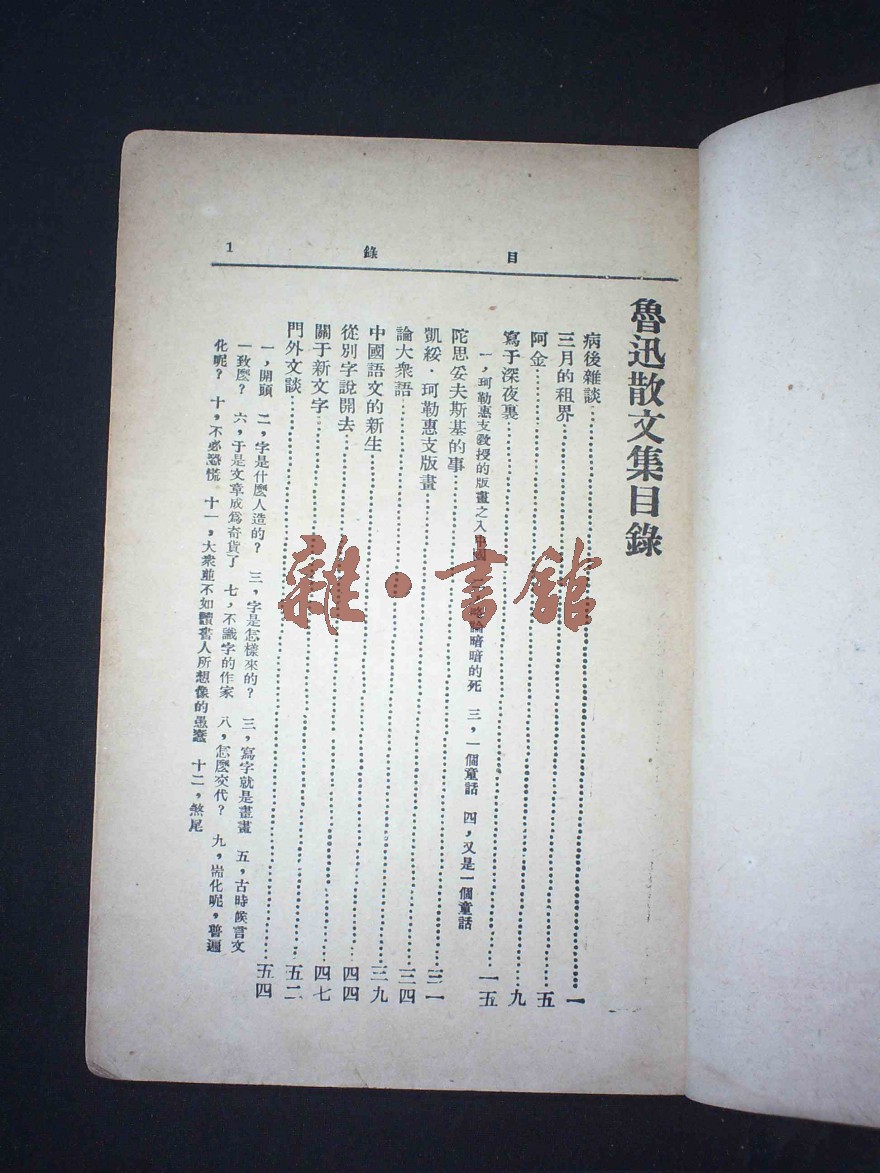 目錄 1
魯迅散文集目錄
病後雜談……一
三月的租界……五
阿金……九
寫于深夜裏……一五
一，珂勒惠支敎授的版畫之入中國 論暗暗的死 三，一個童話 四，又是一個童話
陀思妥夫斯基的事……三一
凱綏・珂勒惠支版畫……三四
論大衆語……三九
中國語文的新生……四四
從別字說開去……四七
關于新文字……五二
門外文談……五四
一，開頭 二，字是什麽人造的？ 三，字是怎樣來的？ 三，寫字就是畫畫 五，古時候言文
一致麽？ 六，于是文章成爲奇貨了 七，不識字的作家 八，怎麽交代？ 九，耑化呢，普遍
化呢？ 十，不必恐慌 十一，大衆並不如讀書人所想像的愚蠢 十二，煞尾
雜・書館